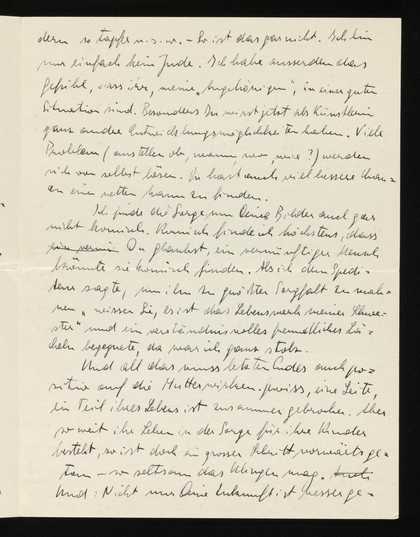 dern so tapfer u.s.w. – So ist das gar nicht. Ich bin
nur einfach kein Jude. Ich habe ausserdem das
Gefühl, dass ihr, meine „Angehörigen", in einer guten
Situation sind. Besonders Du wirst jetzt als Künstlerin
ganz andre Entwicklungsmöglichkeiten haben. Viele
Probleme (ausstellen ob, wann, wo, wie?) werden
sich von selbst lösen. Du hast auch viel bessere Chan-
cen einen netten Mann zu finden.
Ich finde die Sorge um Deine Bilder auch gar
nicht komisch. Komisch finde ich höchstens, dass
Du glaubst, ein vernünftiger Mensch
könnte sie komisch finden. Als ich dem Spedi-
teur sagte, um ihn zu größter Sorgfalt zu mah-
nen „wissen Sie, es ist das Lebenswerk meiner Schwe-
ster" und ein verständnisvolles freundliches Lä-
cheln begegnete, da war ich ganz stolz.
Und all das muss letzten Endes auch po-
sitiv auf die Mutter wirken. Gewiss, eine Seite,
ein Teil ihres Lebens ist zusammengebrochen. Aber
soweit ihr Leben in der Sorge für ihre Kinder
besteht, so ist doch ein grosser Schritt vorwärts ge-
tan – so seltsam das klingen mag.
Und: Nicht nur Deine Zukunft ist besser ge-